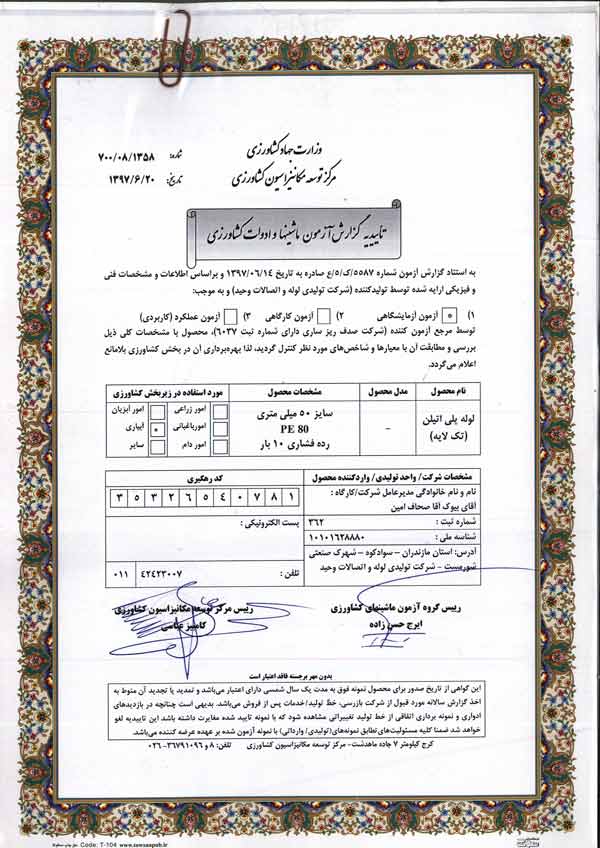 وزارت جهاد کشاورزی
مرکز توسعه مکانیزاسیون کشاورزی
شماره: ۷۰۰/۰۸/۱۳۵۸
تاریخ: ۱۳۹۷/۶/۲۰
تاییدیه گزارش آزمون ماشینها و ادوات کشاورزی
به استناد گزارش آزمون شماره ۵۵۸۷/ک/۵/ع صادره به تاریخ ۱۳۹۷/۰۶/۱۴ و براساس اطلاعات و مشخصات فنی
و فیزیکی ارایه شده توسط تولیدکننده (شرکت تولیدی لوله و اتصالات وحید) و به موجب:
۱) آزمون آزمایشگاهی ۲) آزمون کارگاهی ۳) آزمون عملکرد (کاربردی)
توسط مرجع آزمون کننده (شرکت صدف ریز ساری دارای شماره ثبت ۶۰۳۷)، محصول با مشخصات کلی ذیل
بررسی و مطابقت آن با معیارها و شاخص‌های مورد نظر کنترل گردید، لذا بهره‌برداری آن در بخش کشاورزی بلامانع
اعلام می‌گردد.
نام محصول مدل محصول مشخصات محصول مورد استفاده در زیربخش کشاورزی
لوله پلی اتیلن
(تک لایه)
–
سایز ۵۰ میلی متری
PE 80
رده فشاری ۱۰ بار
امور زراعی امور آبزیان
امورباغبانی آبیاری
امور دام سایر
مشخصات شرکت/ واحد تولیدی/ واردکننده محصول
نام و نام خانوادگی مدیرعامل شرکت/کارگاه :
آقای بیوک آقا صحاف امین
شماره ثبت : ۳۶۲
شناسه ملی : ۱۰۱۰۱۶۲۸۸۸۰
آدرس: استان مازندران – سوادکوه – شهرک صنعتی
شورمست – شرکت تولیدی لوله و اتصالات وحید
کد رهگیری
۳ ۵ ۳ ۲ ۶ ۵ ۴ ۰ ۷ ۸ ۱
پست الکترونیکی :
تلفن : ۴۲۴۲۳۰۰۷ ۰۱۱
رییس گروه آزمون ماشینهای کشاورزی
ایرج حسن زاده
رییس مرکز توسعه مکانیزاسیون کشاورزی
کامبیز عباسی
بدون مهر برجسته فاقد اعتبار است
این گواهی از تاریخ صدور برای محصول نمونه فوق به مدت یک سال شمسی دارای اعتبار می‌باشد و تمدید یا تجدید آن منوط به
اخذ گزارش سالانه مورد قبول از شرکت بازرسی، خط تولید/خدمات پس از فروش می‌باشد. بدیهی است چنانچه در بازدیدهای
ادواری و نمونه برداری اتفاقی از خط تولید تغییراتی مشاهده شود که با نمونه تایید شده مغایرت داشته باشد. این تاییدیه لغو
خواهد شد ضمنا کلیه مسئولیت‌های تطابق نمونه‌های(تولیدی/ وارداتی) با نمونه آزمون شده بر عهده عرضه کننده می‌باشد.
کرج کیلومتر ۷ جاده ماهدشت- مرکز توسعه مکانیزاسیون کشاورزی تلفن: ۸ و ۳۶۷۹۱۰۹۶-۰۲۶
Code: T-104 www.sawsaapub.ir